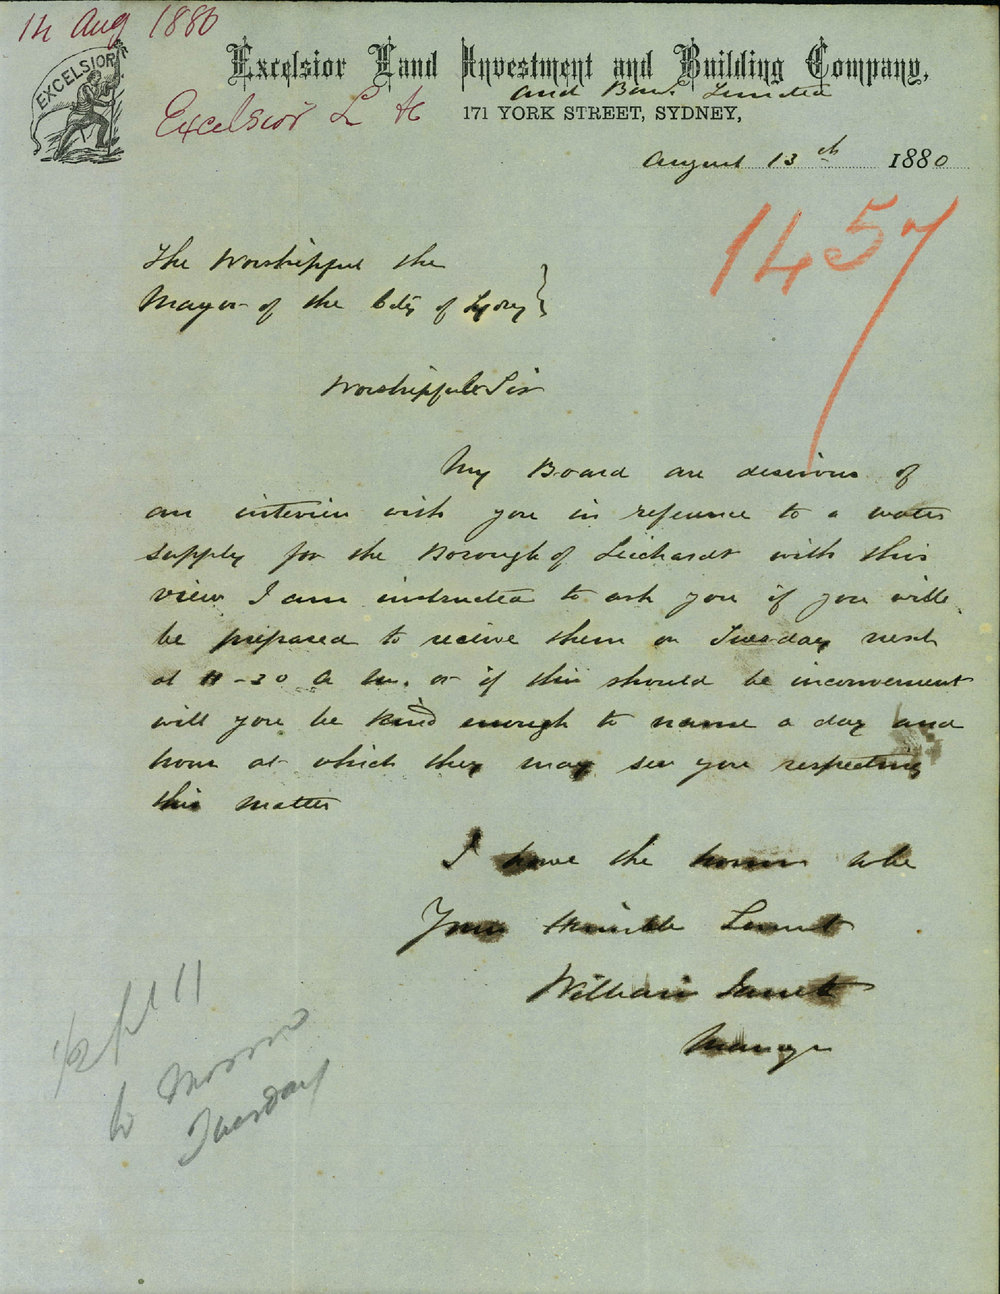 14 Aug 1880
EXCELSIOR
Excelsior Land Investment and Building Company,
and Bank Limited
Excelsior L &c
171 YORK STREET, SYDNEY,
August 13th 1880
1457
The Worshipful the
Mayor of the City of Sydney
Worshipful Sir
My Board are desirous of
an interview with you in reference to a water
supply for the Borough of Leichardt with this
view I am instructed to ask you if you will
be prepared to receive them on Tuesday next
at 11-30 A M. or if this should be inconvenient
will you be kind enough to name a day and
hour at which they may see you respecting
this matter
I have the honor to be
Your Humble Servant
William
Manager
1/2 pst 11
to Morrow
Tuesday